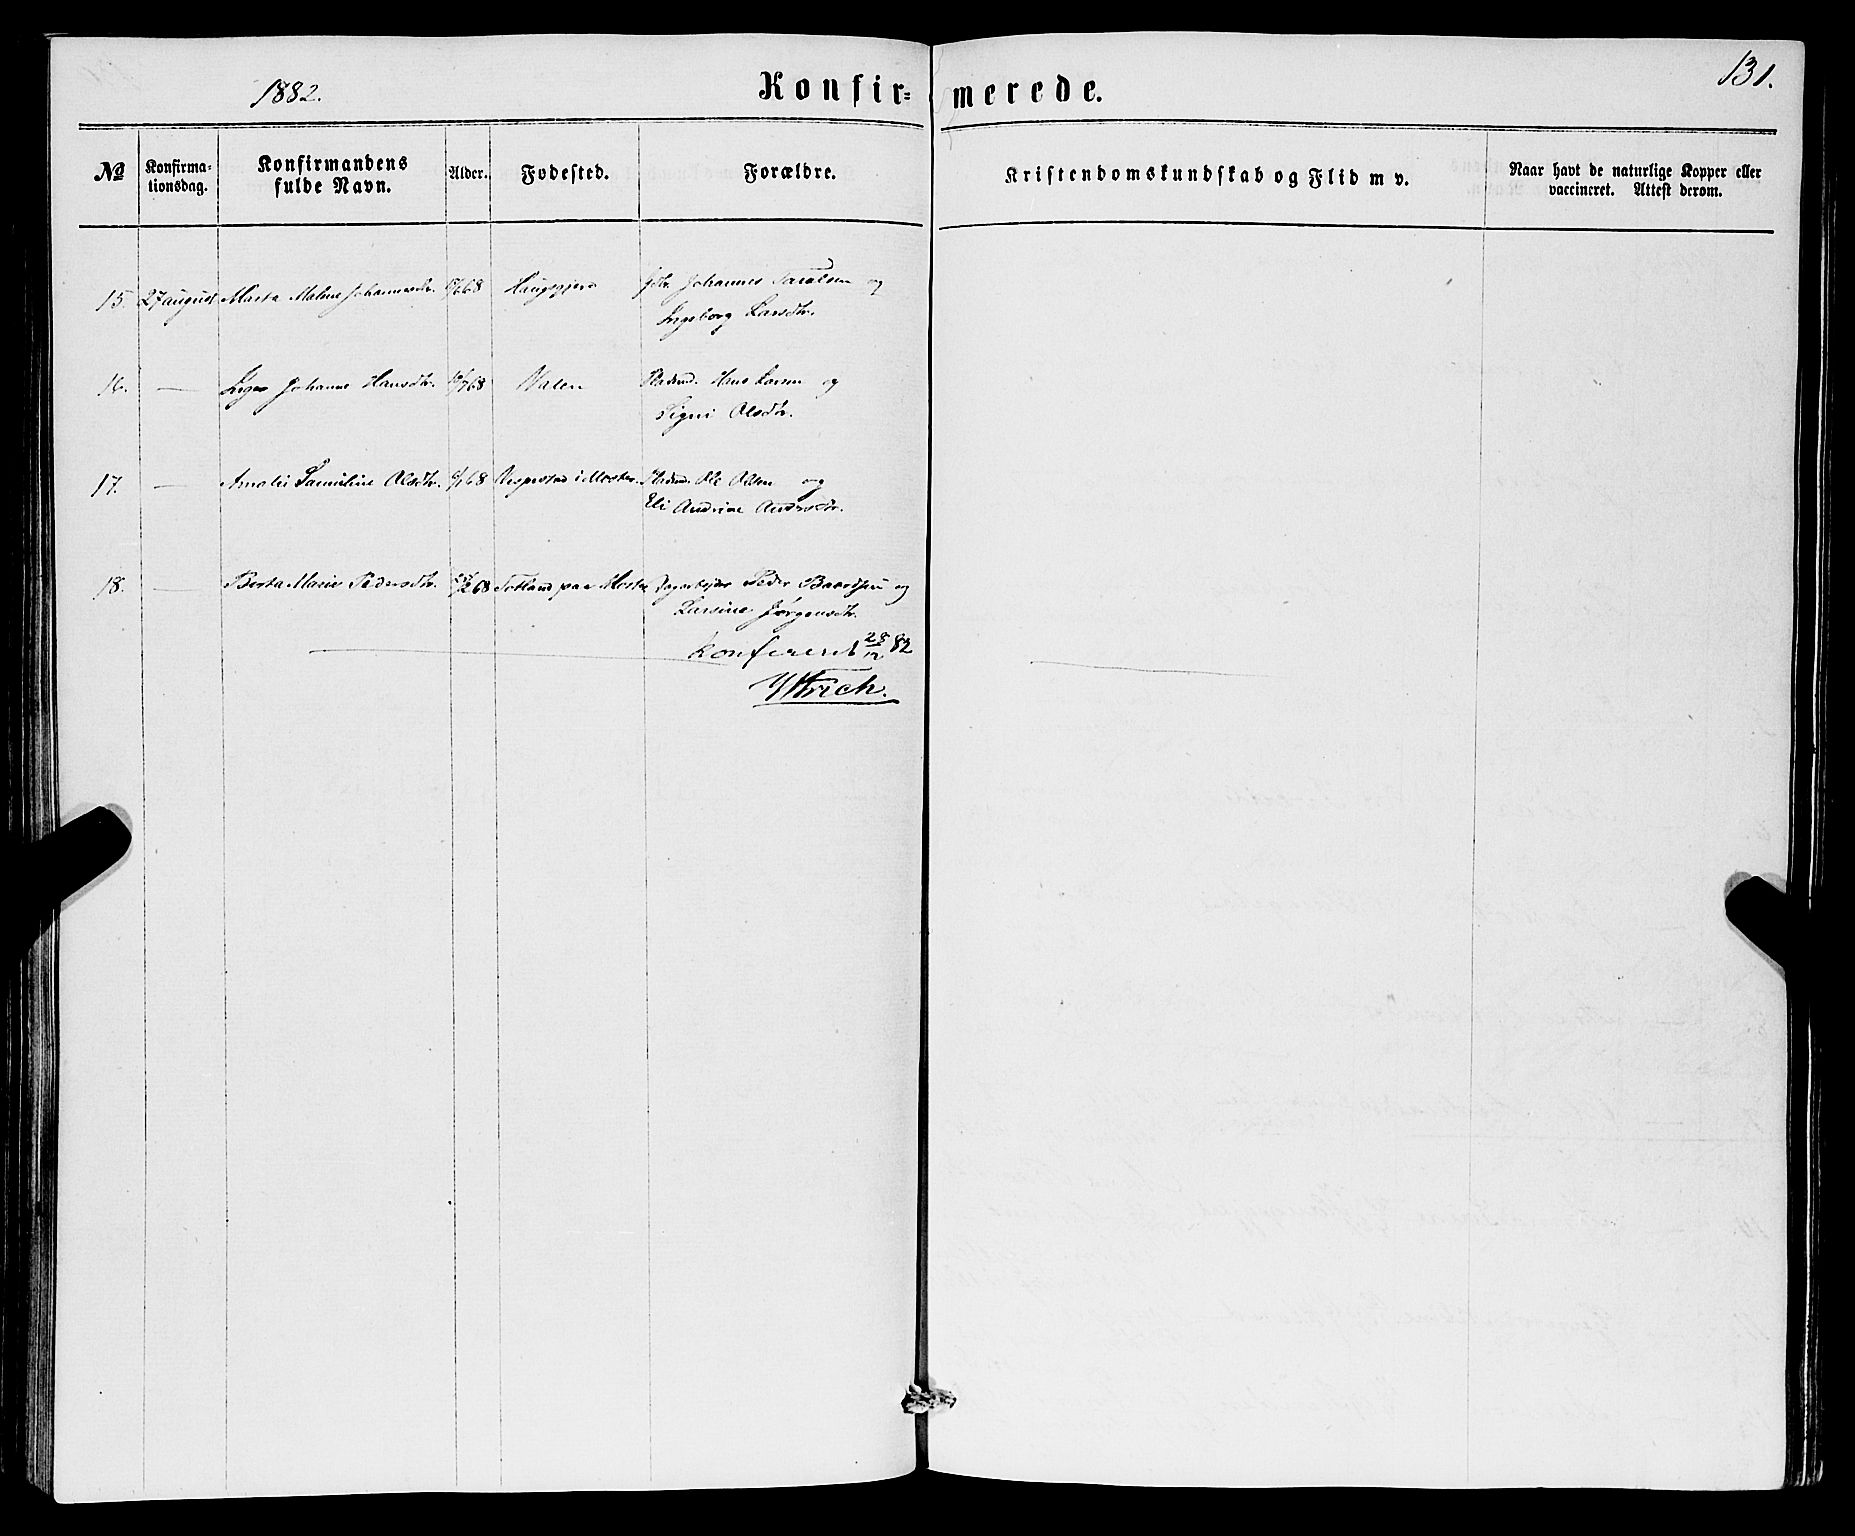 1882.
Konfir=merede.
131.
No
Konfirma-
tionsdag.
Konfirmandens
fulde Navn.
Alder.
Fødested.
Forældre.
Kristendomskundskab og Flid m v.
Naar havt de naturlige Kopper eller
vaccineret. Attest derom.
15. 27 august Marta Malene Johannesdtr. 68 Johannes og
Ingeborg Larsdtr.
16. — Johanne Hansdtr. 68 Valen Hans Larsen og
Signi Olsdtr.
17. — Amalie Olsdtr. 68 i Moster Ole Olsen og
Eli Andrine
18. — Berta Marie Pedersdtr. 68 Totland paa Moster Dagarbeider Peder Baardsen og
Larsine Jørgensdtr.
Konfereret 28/12 82